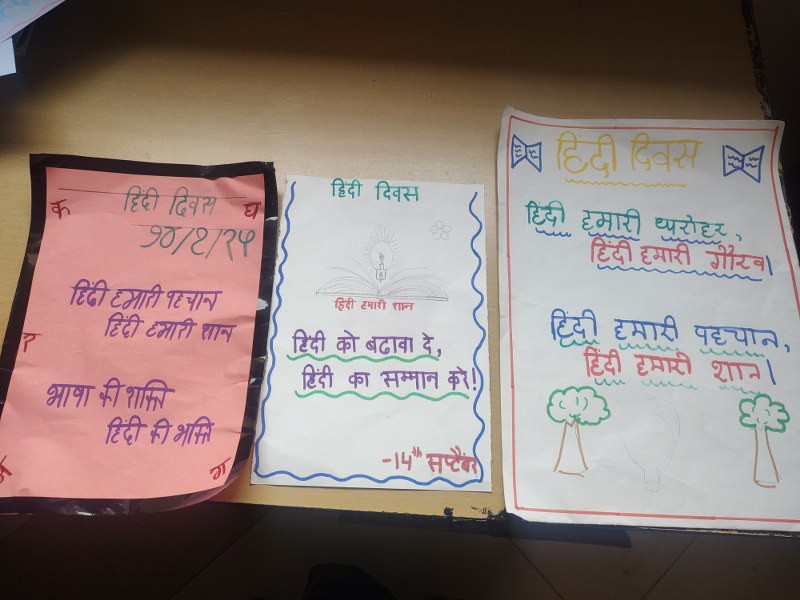 हिंदी दिवस
क
घ
१०/९/२५
हिंदी हमारी पहचान
हिंदी हमारी शान
भाषा की शक्ति
हिंदी की भक्ति
ग
हिंदी दिवस
हिंदी हमारी शान
हिंदी को बढावा दे,
हिंदी का सम्मान करे!
-14th सप्टेंबर
हिंदी दिवस
हिंदी हमारी धरोहर,
हिंदी हमारी गौरव।
हिंदी हमारी पहचान,
हिंदी हमारी शान।